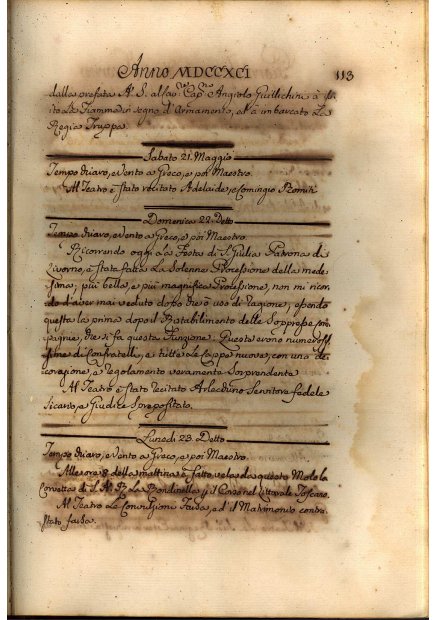 Anno MDCCXCI
113
dalla prefata A. S. al Capno Angiolo Guillichini à
in segno d'Armamento, ed à imbarcato La
Regia Truppa.
Sabato 21. Maggio
Tempo chiaro, e Vento a Greco, e poi Maestro.
Al Teatro è stato recitato Adelaide, e Comingio Romiti
Domenica 22. Detto
Tempo chiaro, e Vento a Greco, e poi Maestro.
Ricorrendo oggi La Festa di S. Giulia Patrona di
Livorno, è stata fatta La Solenne Processione della mede-
sima; più bella, e più magnifica Processione, non mi ricor
do d'aver mai veduto dopo che è uso di ragione, essendo
questa la prima dopo il Ristabilimento delle Soppresse com
pagnie, che si fa questa Funzione. Queste erono numerosis
sime di Confratelli, e tutte Le Cappe nuove, con una de
corazione, e regolamento veramente Sorprendente
Al Teatro è stato recitato Arlechino Servitore fedele
Sicario e Giudice Spropositato.
Lunedi 23. Detto
Tempo chiaro, e Vento a Greco, e poi Maestro.
Alle ore 8 della mattina à fatto vela da questo Molo la
Corvetta di S. A. R. La Rondinella il Littorale Toscano.
Al Teatro Le Convulsioni Farsa, ed il Matrimonio contra
stato farsa.